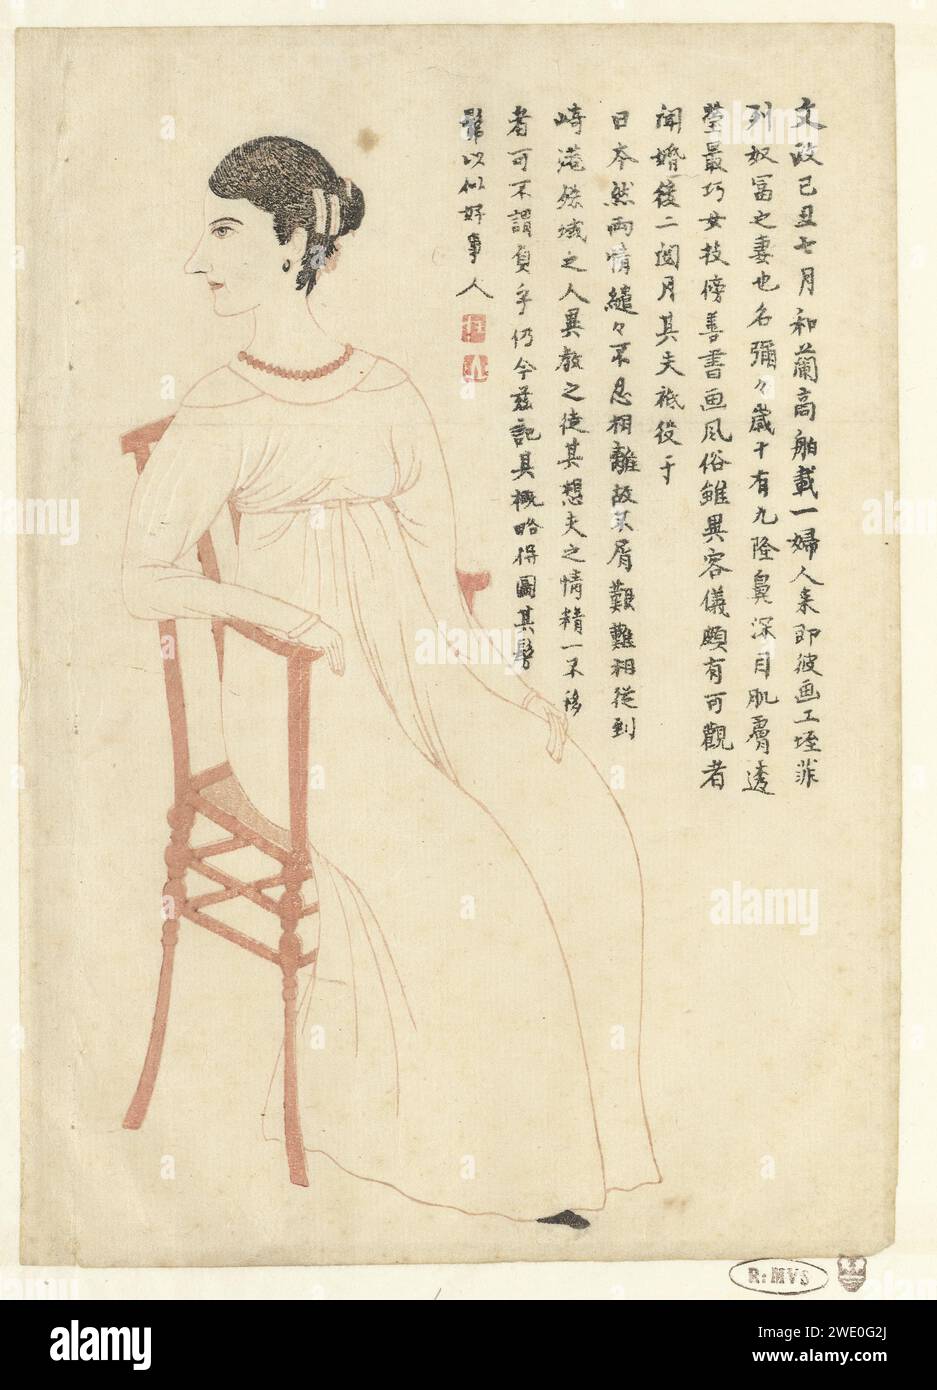 文政己丑七月和蘭高舶載一婦人来即彼画工垤菲
列奴冨之妻也名彌々歳十有九隆鼻深目肌膚透
瑩最巧女技傍善書画風俗雖異容儀頗有可觀者
聞婚後二閲月其夫祗役于
日夲然兩情繾々不忍相離故不屑艱難相從到
崎港殊域之人異教之徒其想夫之情精一不移
者可不謂貞乎仍今茲記其概略得圖其髣
髴以似好事人
R: MVS
alamy
Image ID: 2WE0G2J
www.alamy.com